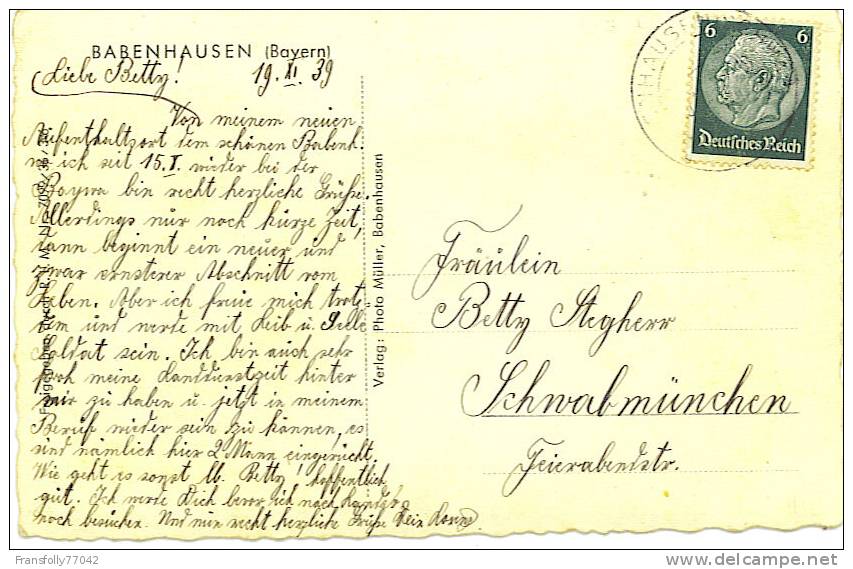 BABENHAUSEN (Bayern)
Liebe Betty! 19. XI. 39
Von meinem neuen
Aufenthaltsort dem schönen Babenh.
wo ich seit 15.X. wieder bei der
Baywa bin recht herzliche Grüße.
Allerdings nur noch kurze Zeit,
dann beginnt ein neuer und
zwar ernsterer Abschnitt vom
Leben. Aber ich freue mich trotz-
dem und werde mit Leib u. Seele
Soldat sein. Ich bin auch sehr
froh meine Landdienstzeit hinter
mir zu haben u. jetzt in meinem
Beruf wieder sein zu können, es
sind nämlich hier 2 Mann eingerückt.
Wie geht es sonst lb. Betty? hoffentlich
gut. Ich werde Dich bevor ich nach
noch besuchen. Und nun recht herzliche Grüße Dein
Verlag: Photo Müller, Babenhausen
6 6
Deutsches Reich
Fräulein
Betty Stegherr
Schwabmünchen
Feierabendstr.
Fransfolly77042
delcampe.net